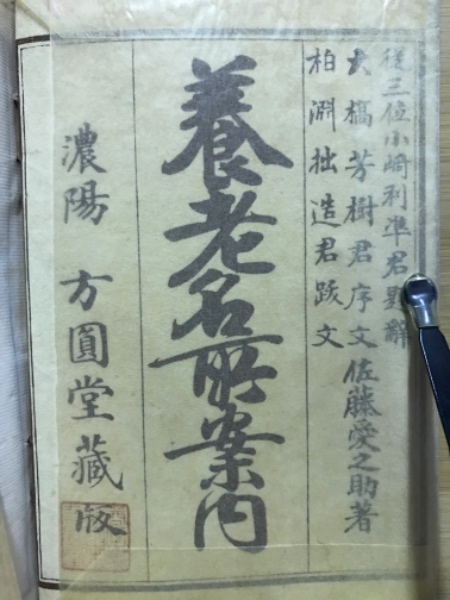 従三位小崎利準君題辭
大橋芳樹君序文
柏淵拙造君跋文
佐藤愛之助著
養老名所案内
濃陽 方圓堂藏版